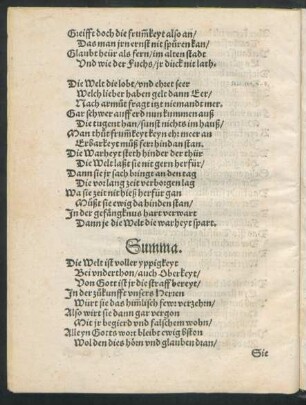 Greifft doch die frumkeyt also an/
Das man jrn ernst nit spüren kan/
Glaubt heür als fern/ im alten stadt
Vnd wie der Fuchs/ jr dück nit lath.
Die Welt die lobt/ vnd ehret seer
Welch lieber haben gelt dann Eer/
Nach armůt fragt itzt niemandt mer.
Gar schwer auff erd nun kummen auß
Die tugent han/ sunst nichts im hauß/
Man thůt frumkeyt keyn eht meer an
Erbarkeyt můß ferr hindan stan.
Die Warheyt steth hinder der thür
Die Welt laßt sie nit gern herfür/
Dann sie jr sach bringt an den tag
Die vorlang zeit verborgen lag
Wa sie zeit nit hieß herfür gan
Müßt sie ewig da hinden stan/
In der gefängknus hart verwart
Dann je die Welt die warheyt spart.
Summa.
Die Welt ist voller yppigkeyt
Bei vnderthon/ auch Oberkeyt/
Von Gott ist jr die straff bereyt/
In der zůkunfft vnsers Herren
Würt sie das himlisch fewr verzehrn/
Also wirt sie dann gar vergon
Mit jr begierd vnd falschem wohn/
Alleyn Gotts wort bleibt ewig bston
Wol den dies hörn vnd glauben dran/
Sie